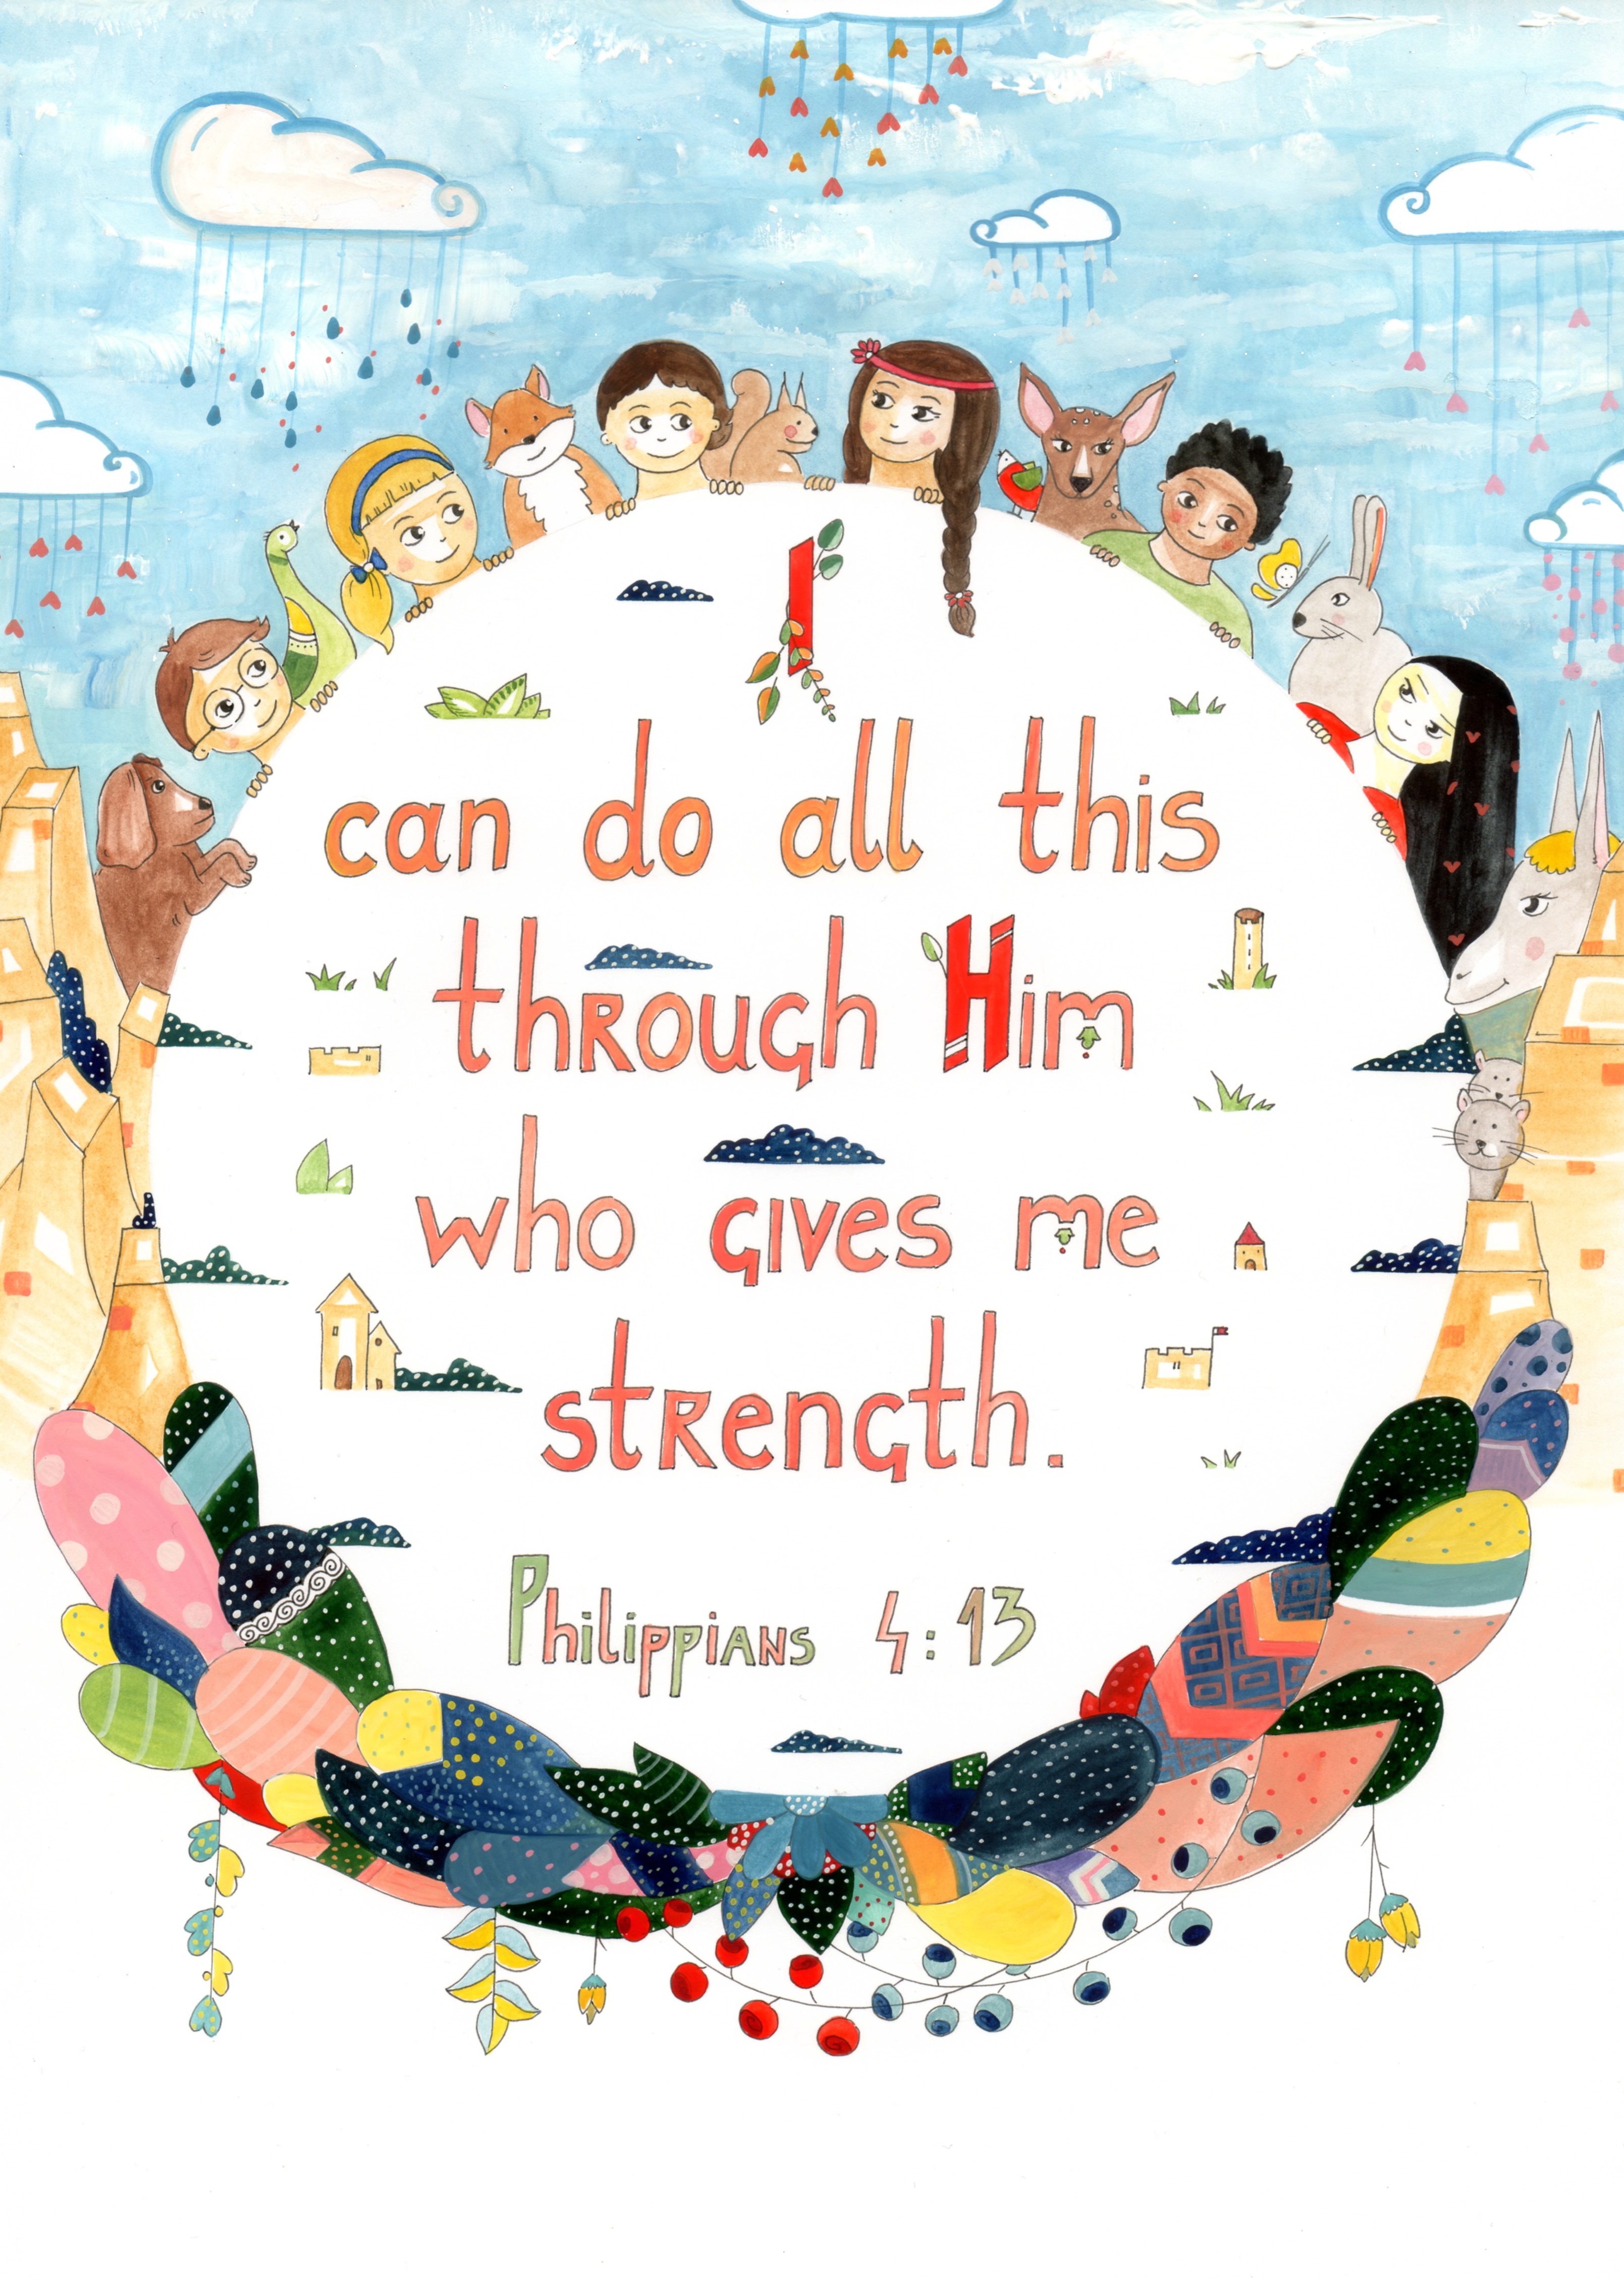 I
can do all this
through Him
who gives me
strength.
Philippians 4:13